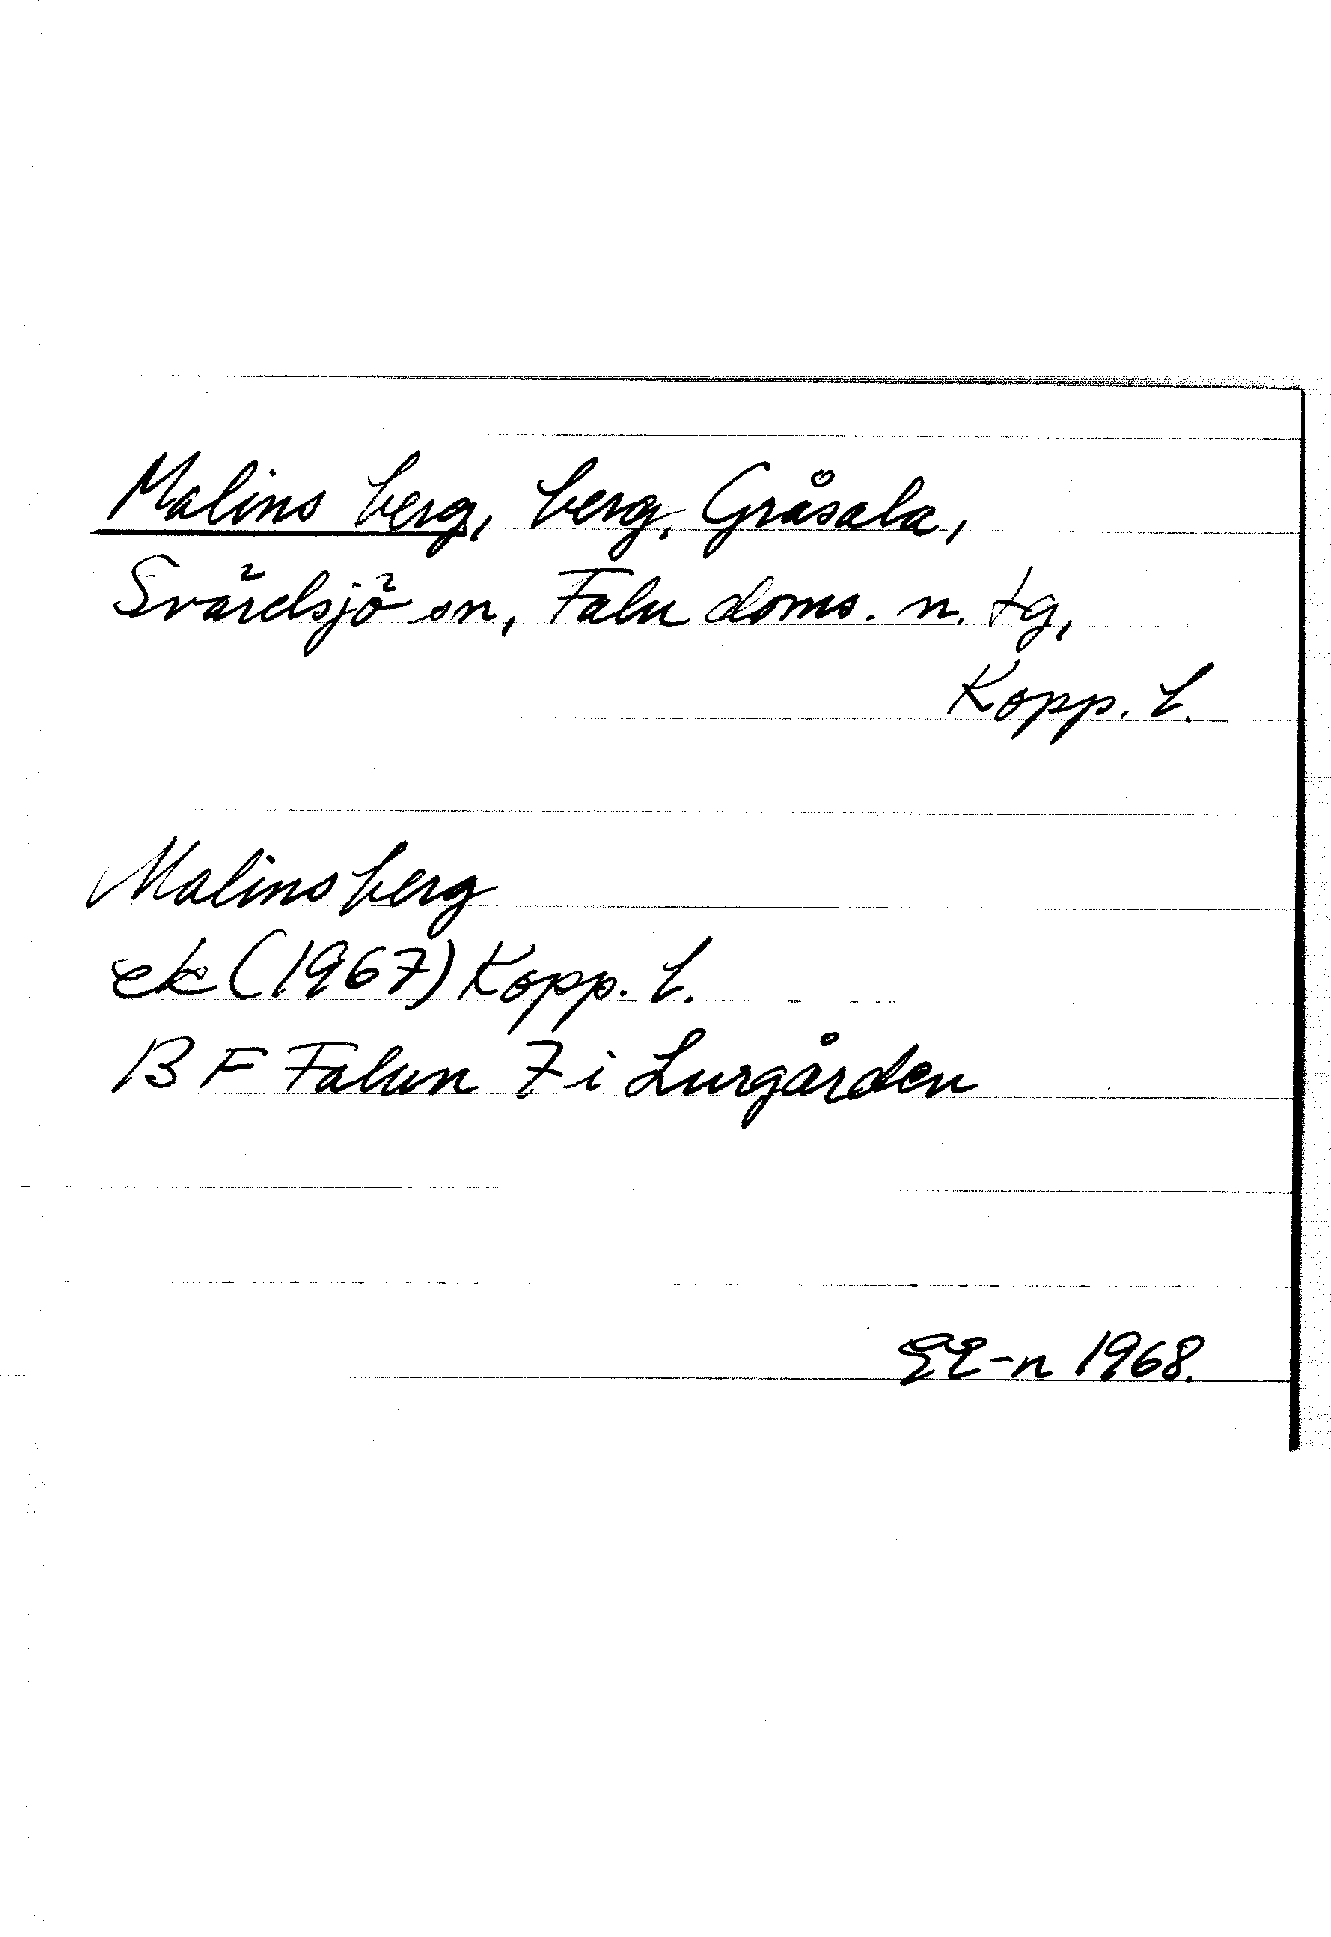 Malins berg, berg, Gråsala,
Svärdsjö sn, Falu doms. n. tg,
Kopp. l.
Malinsberg
ek (1967) Kopp. l.
B F Falun 7 i Lurgården
EE-n 1968.